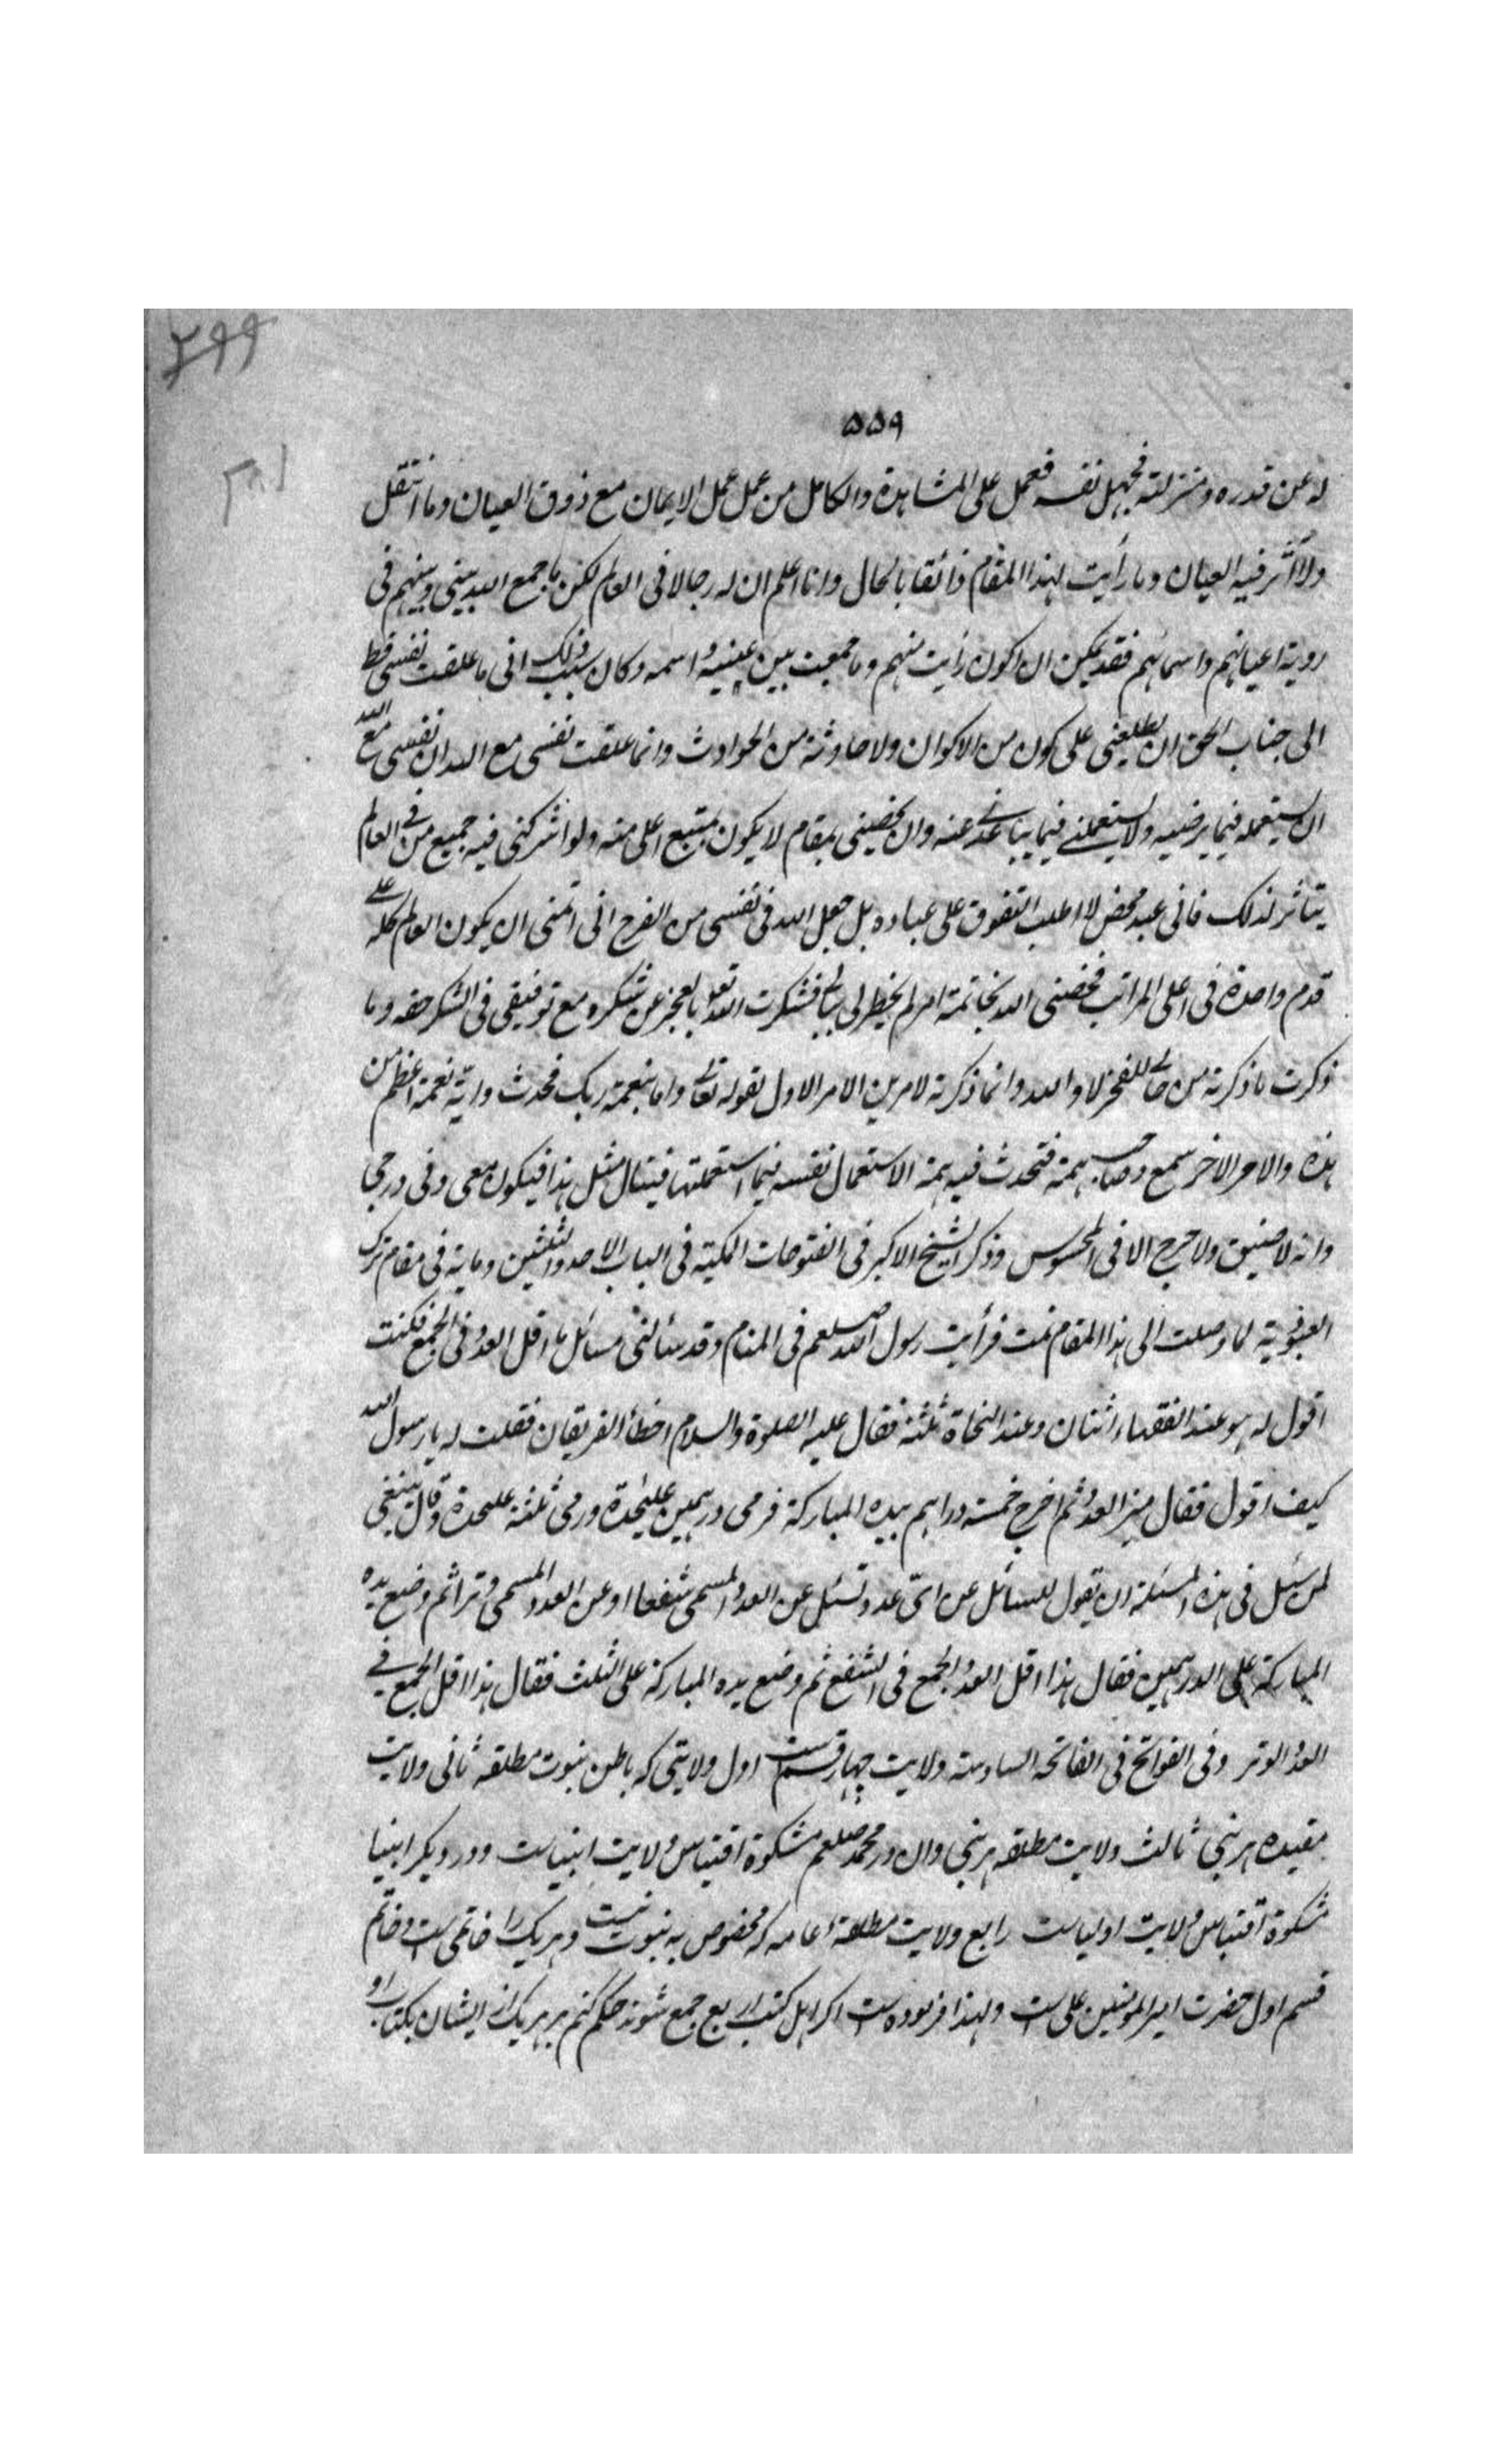 ۲۹۹
۵۵۹
له عن قدره ومنزلته فجهل نفسه فعمل على المشاهدة والكامل من عمل عمل الايمان مع ذوق العيان وما انتقل
ولا أثر فيه العيان وما رأيت لهذا المقام ذائقا بالحال وانا اعلم ان له رجالا فى العالم لكن ما جمع الله بينى وبينهم فى
روية اعيانهم واسمائهم فقد يمكن ان اكون رأيت منهم وما جمعت بين عينيه واسمه وكان سبب ذلك انى ما علقت نفسى قط
الى جناب الحق ان يطلعنى على كون من الاكوان ولا حادثة من الحوادث وانما علقت نفسى مع الله ان نفسى مع الله
ان يستعمله فيما يرضيه ولا يستعملنے فيما يباعدنے عنه وان يخصنى بمقام لا يكون لمتبع اعلى منه ولو اشركنى فيه جميع من فے العالم
يتأثر لذلك فانى عبد محض لا اطلب التفوق على عباده بل جعل الله فى نفسى من الفرح انى اتمنى ان يكون العالم كله علے
قدم واحدة فى اعلى المراتب فخصنى الله بخاتمة امر لم يخطر لى ببالى فشكرت الله تعالى بالعجز عن شكره مع توفيقى فى الشكر حقه وما
ذكرت ما ذكرته من حالے للفخر لا والله وانما ذكرته لامرين الامر الاول لقوله تعالے واما بنعمة ربك فحدث واية نعمة اعظم من
هذه والامر الاخر ليسمع صاحب همة فتحدث فيه همة الاستعمال نفسه فيما استعملتها فينال مثل هذا فيكون معى وفى درجتى
وانه لا ضيق ولا حرج الا فى المحسوس وذكر الشيخ الاكبر فى الفتوحات المكية فى الباب الاحد والثلثين وماية فى مقام ترك
العبودية لما وصلت الى هذا المقام نمت فرأيت رسول الله صلعم فى المنام وقد سألنى مسائل ما اقل العدد فى الجمع فكنت
اقول له هو عند الفقهاء اثنان وعند النحاة ثلثة فقال عليه الصلوة والسلام اخطأ الفريقان فقلت له يا رسول الله
كيف اقول فقال ميز العدد ثم اخرج خمسة دراهم بيده المباركة فرمى درهمين عليحدة ورمى ثلثة عليحدة وقال ينبغى
لمن سئل فى هذه المسئلة ان يقول للسائل عن اى عدد تسئل عن العدد المسمى شفعا او عن العدد المسمى وترا ثم وضع يده
المباركة على الدرهمين فقال هذا اقل العدد الجمع فى الشفع ثم وضع يده المباركة على الثلث فقال هذا اقل الجمع فے
العدد الوتر وفى الفواتح فى الفاتحه السادسة ولايت چهار قسم ست اول ولايتى كه باطن نبوت مطلقه ثانى ولايت
مقيده هر نبى ثالث ولايت مطلقه هر نبى وان در محمد صلعم مشكوة اقتباس ولايت انبياست ودر ديكر انبيا
مشكوة اقتباس ولايت اولياست رابع ولايت مطلقه عامه كه مخصوص به نبوت نيست وهر يك را خاتمى است وخاتم
قسم اول حضرت امير المومنين على ست ولهذا فرموده ست اكر اهل كتب اربع جمع شوند حكم كنم بر هر يك از ايشان بكتاب او